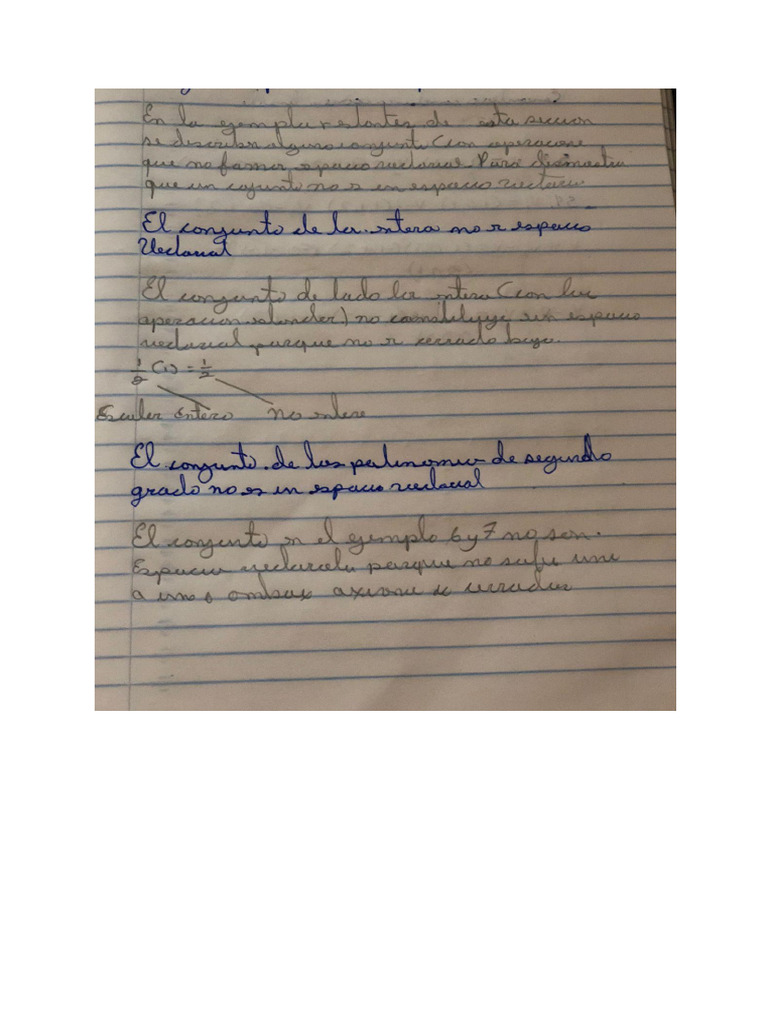 En la ejemplo restantes de esta seccion
se describen alguno conjunto (con operacione
que no formar espacio vectorial. Para dismostra
que un cojunto no s un espacio vectori
El conjunto de la intera no r espacio
Vectorial
El conjunto de todo la intero (con la
operacion estander) no constituye un espacio
vectorial porque no r cerrado bajo.
1/2 (1) = 1/2
Escaler Entero no intere
El conjunto de los polinomio de segundo
grado no es in espacio vectorial
El conjunto n el ejemplo 6 y 7 no son.
Espacio vectoriale porque no
a uno o ambax axiome de cerradur